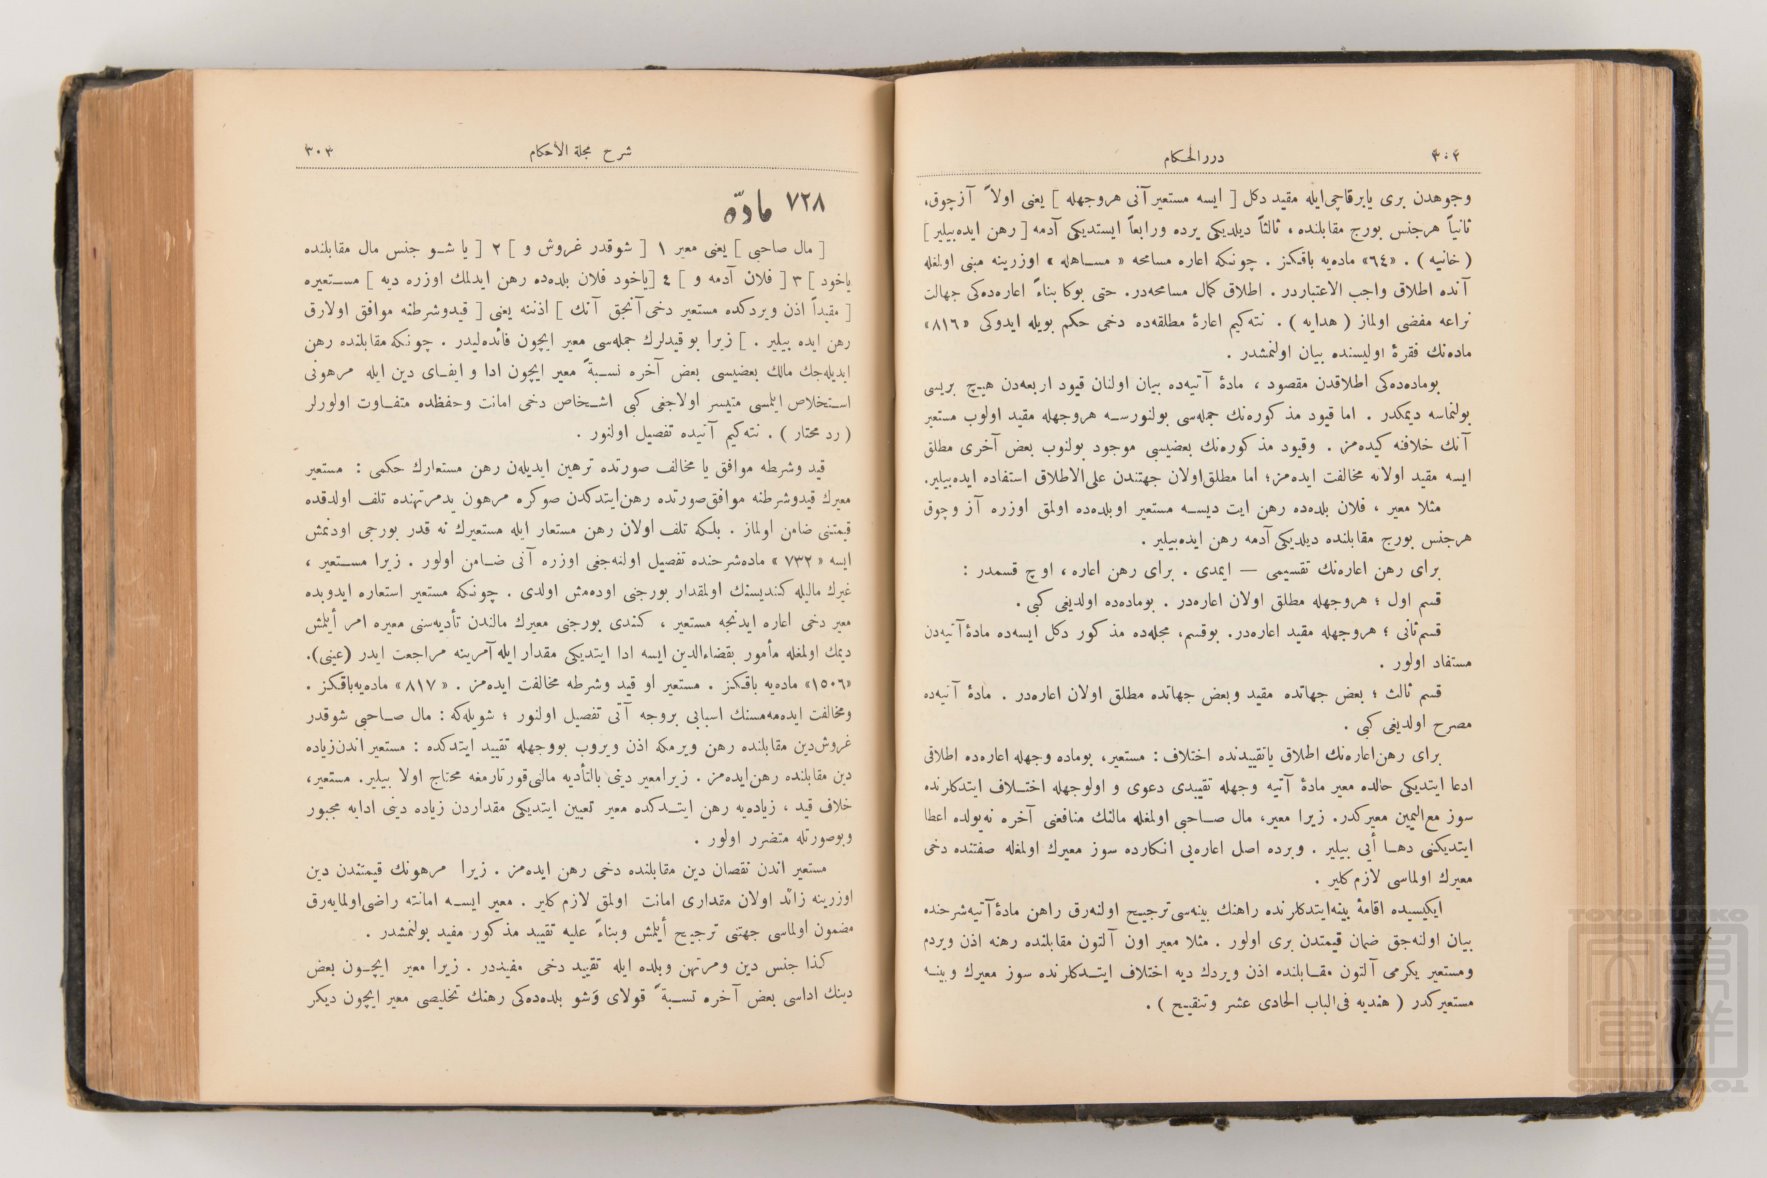 ٣٠٢
درر الحكام
وجوهدن بری یابرقاچی‌ایله مقید دكل [ ایسه مستعیر آنی هروجهله ] یعنی اولاً آزچوق،
ثانیاً هرجنس بورج مقابلنده ، ثالثاً دیلدیكی یرده ورابعاً ایستدیكی آدمه [ رهن ایده‌بیلیر ]
( خانیه ) . «٦٤» ماده‌یه باقكز . چونكه اعاره مسامحه « مساهله » اوزرینه مبنی اولمغله
آنده اطلاق واجب الاعتباردر . اطلاق كمال مسامحه‌در. حتی بوكا بناءً اعاره‌ده‌كی جهالت
نزاعه مفضی اولماز ( هدایه ) . نته‌كیم اعارهٔ مطلقه‌ده دخی حكم بویله ایدوكی «٨١٦»
ماده‌نك فقرهٔ اولیسنده بیان اولنمشدر .
بوماده‌ده‌كی اطلاقدن مقصود ، مادهٔ آتیه‌ده بیان اولنان قیود اربعه‌دن هیچ بریسی
بولنماسه دیمكدر . اما قیود مذكوره‌نك جمله‌سی بولنورسه هروجهله مقید اولوب مستعیر
آنك خلافنه كیده‌مز . وقیود مذكوره‌نك بعضیسی موجود بولنوب بعض آخری مطلق
ایسه مقید اولانه مخالفت ایده‌مز؛ اما مطلق‌اولان جهتندن علی‌الاطلاق استفاده ایده‌بیلیر.
مثلا معیر ، فلان بلده‌ده رهن ایت دیسه مستعیر اوبلده‌ده اولمق اوزره آز وچوق
هرجنس بورج مقابلنده دیلدیكی آدمه رهن ایده‌بیلیر .
برای رهن اعاره‌نك تقسیمی — ایمدی . برای رهن اعاره ، اوچ قسمدر :
قسم اول ؛ هروجهله مطلق اولان اعاره‌در . بوماده‌ده اولدیغی كبی .
قسم‌ثانی ؛ هروجهله مقید اعاره‌در. بوقسم، مجله‌ده مذكور دكل ایسه‌ده مادهٔ آتیه‌دن
مستفاد اولور .
قسم ثالث ؛ بعض جهاتده مقید وبعض جهاتده مطلق اولان اعاره‌در . مادهٔ آتیه‌ده
مصرح اولدیغی كبی .
برای رهن‌اعاره‌نك اطلاق یاتقییدنده اختلاف : مستعیر، بوماده وجهله اعاره‌ده اطلاق
ادعا ایتدیكی حالده معیر مادهٔ آتیه وجهله تقییدی دعوی و اولوجهله اختلاف ایتدكلرنده
سوز مع‌الیمین معیركدر. زیرا معیر، مال صاحبی اولمغله مالنك منافعنی آخره نه‌یولده اعطا
ایتدیكنی دها أیی بیلیر . وبرده اصل اعاره‌یی انكارده سوز معیرك اولمغله صفتنده دخی
معیرك اولماسی لازم‌كلیر .
ایكیسیده اقامهٔ بینه‌ایتدكلرنده راهنك بینه‌سی‌ترجیح اولنه‌رق راهن مادهٔ آتیه‌شرحنده
بیان اولنه‌جق ضمان قیمتدن بری اولور . مثلا معیر اون آلتون مقابلنده رهنه اذن ویردم
ومستعیر یكرمی آلتون مقابلنده اذن ویردك دیه اختلاف ایتدكلرنده سوز معیرك وبینه
مستعیركدر ( هندیه فی‌الباب الحادی عشر وتنقیح ) .
شرح مجلة الأحكام
٣٠٣
٧٢٨ مادّه
[ مال صاحبی ] یعنی معیر ١ [ شوقدر غروش و ] ٢ [ یا شو جنس مال مقابلنده
یاخود ] ٣ [ فلان آدمه و ] ٤ [یاخود فلان بلده‌ده رهن ایدلمك اوزره دیه ] مستعیره
[ مقیداً اذن ویردكده مستعیر دخی آنجق آنك ] اذننه یعنی [ قیدوشرطنه موافق اولارق
رهن ایده بیلیر . ] زیرا بوقیدلرك جمله‌سی معیر ایچون فائده‌لیدر . چونكه مقابلنده رهن
ایدیله‌جك مالك بعضیسی بعض آخره نسبةً معیر ایچون ادا و ایفای دین ایله مرهونی
استخلاص ایلمسی متیسر اولاجغی كبی اشخاص دخی امانت وحفظده متفاوت اولورلر
( رد محتار ) . نته‌كیم آتیده تفصیل اولنور .
قید وشرطه موافق یا مخالف صورتده ترهین ایدیلن رهن مستعارك حكمی : مستعیر
معیرك قیدوشرطنه موافق‌صورتده رهن‌ایتدكدن صوكره مرهون یدمرتهنده تلف اولدقده
قیمتنی ضامن اولماز . بلكه تلف اولان رهن مستعار ایله مستعیرك نه قدر بورجی اودنمش
ایسه « ٧٣٢ » ماده‌شرحنده تفصیل اولنه‌جغی اوزره آنی ضامن اولور . زیرا مستعیر ،
غیرك مالیله كندیسنك اولمقدار بورجنی اوده‌مش اولدی . چونكه مستعیر استعاره ایدوبده
معیر دخی اعاره ایدنجه مستعیر ، كندی بورجنی معیرك مالندن تأدیه‌سنی معیره امر أیلمش
دیمك اولمغله مأمور بقضاءالدین ایسه ادا ایتدیكی مقدار ایله آمرینه مراجعت ایدر (عینی).
«١٥٠٦» ماده‌یه باقكز . مستعیر او قید وشرطه مخالفت ایده‌مز . « ٨١٧» ماده‌یه‌باقكز .
ومخالفت ایده‌مه‌مسنك اسبابی بروجه آتی تفصیل اولنور ؛ شویله‌كه : مال صاحبی شوقدر
غروش‌دین مقابلنده رهن ویرمكه اذن ویروب بووجهله تقیید ایتدكده : مستعیر اندن‌زیاده
دین مقابلنده رهن‌ایده‌مز . زیرامعیر دینی بالتأدیه مالنی‌قورتارمغه محتاج اولا بیلیر. مستعیر،
خلاف قید ، زیاده‌یه رهن ایتدكده معیر تعیین ایتدیكی مقداردن زیاده دینی ادایه مجبور
وبوصورتله متضرر اولور .
مستعیر اندن نقصان دین مقابلنده دخی رهن ایده‌مز . زیرا مرهونك قیمتندن دین
اوزرینه زائد اولان مقداری امانت اولمق لازم كلیر . معیر ایسه امانته راضی‌اولمایه‌رق
مضمون اولماسی جهتنی ترجیح أیلمش وبناءً علیه تقیید مذكور مفید بولنمشدر .
كذا جنس دین ومرتهن وبلده ایله تقیید دخی مفیددر . زیرا معیر ایچون بعض
دینك اداسی بعض آخره نسبةً قولای وشو بلده‌ده‌كی رهنك تخلیصی معیر ایچون دیكر
TOYO BUNKO
東洋文庫
TOYO BUNKO